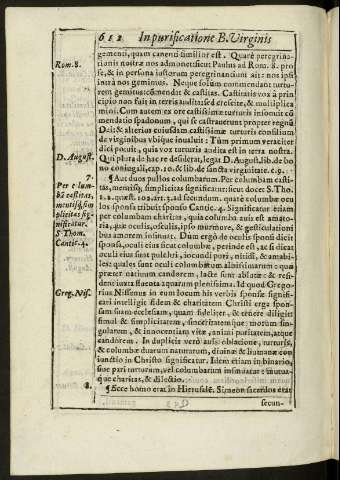 612 In purificatione B. Virginis
gementi, quam canenti similior est. Quare peregrina-
tionis nostræ nos admonet sicut Paulus ad Rom. 8. pro
se, & in persona iustorum peregrinantium ait: nos ipsi
intrà nos gemimus. Neque solùm commendant turtu-
rem gemitus: cõmendit & castitas. Castitatis vox à prin-
cipio non fuit in terris audita: sed crescite, & multiplica
mini. Cum autem ex ore castissimi turturis insonuit cõ-
mendatio spadonum, qui se castrauerunt propter regnũ
Dei: & alterius eiusdam castissimæ turturis consilium
de virginibus vbique inualuit: Tùm primum veraciter
dici potuit, quia vox turturis audita est in terra nostra.
Qui plura de hac re desiderat, legat D. August. lib. de bo
no coniugali, cap. 10. & lib. de sancta virginitate. c. 9.
¶ Aut duos pullos columbarum. Per columbam casti-
tas, mentisq́; simplicitas significatur: sicut docet S. Tho.
1. 2. quæst. 102. art. 3. ad secundum. quare columbæ ocu
los sponsa tribuit sponsus Cantic. 4. Significatur etiam
per columbam charitas, quia columba auis est amato-
ria, quæ oculis, osculis, ipso murmure, & gesticulationi
bus amorem insinuat. Dum ergò de oculis sponsi dicit
sponsa, oculi eius sicut columbæ, perinde est, ac si dicat
oculi eius sunt pulchri, iocundi pori, nitidi, & amabi-
les: quales sunt oculi columbarum
præter natiuum candorem, lacte sunt ablutæ: & resi-
dent iuxta fluenta aquarum plenissima. Id quod Grego-
rius Nissenus in eum locum his verbis sponse signifi-
cari intelligit fidem & charitatem Christi erga spon-
sam suam ecclesiam, quam fideliter, & tenere diligit
simul & simplicitatem, sinceritatemque; morum sin-
gularum, & innocentiam vitæ, animi puritatem, atque
candorem. In duplicis verò auis oblatione, turturis,
& columbæ duarum naturarum, diuinæ & humanæ con
iunctio in Christo significatur. Idem etiam in binario,
siue pari turturum, vel columbarum insinuatur: mutua-
que charitas, & dilectio.
¶ Ecce homo erat in Hierusalẽ. Simeon sacerdos erat
secun-
Rom. 8.
D. August.
7.
Per colum-
bã castitas,
mentisq́; sim
plicitas sig-
nificatur.
S. Thom.
Cantic. 4.
Greg. Nis.
8.